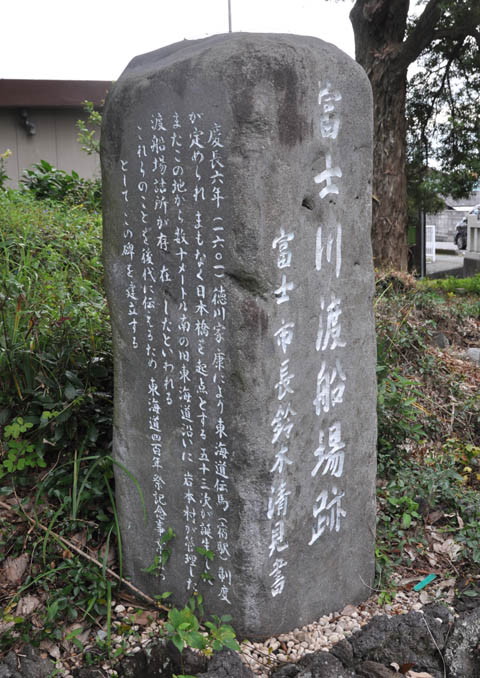 富士川渡船場跡
富士市長鈴木清見書
慶長六年(一六〇一)徳川家康により東海道伝馬(宿駅)制度
が定められ まもなく日本橋を起点とする五十三次が誕生し
またこの地から数十メートル南の旧東海道沿いに 岩本村が管理した
渡船場詰所が存在したといわれる
これらのことを後代に伝えるため 東海道四百年祭記念事
として この碑を建立する